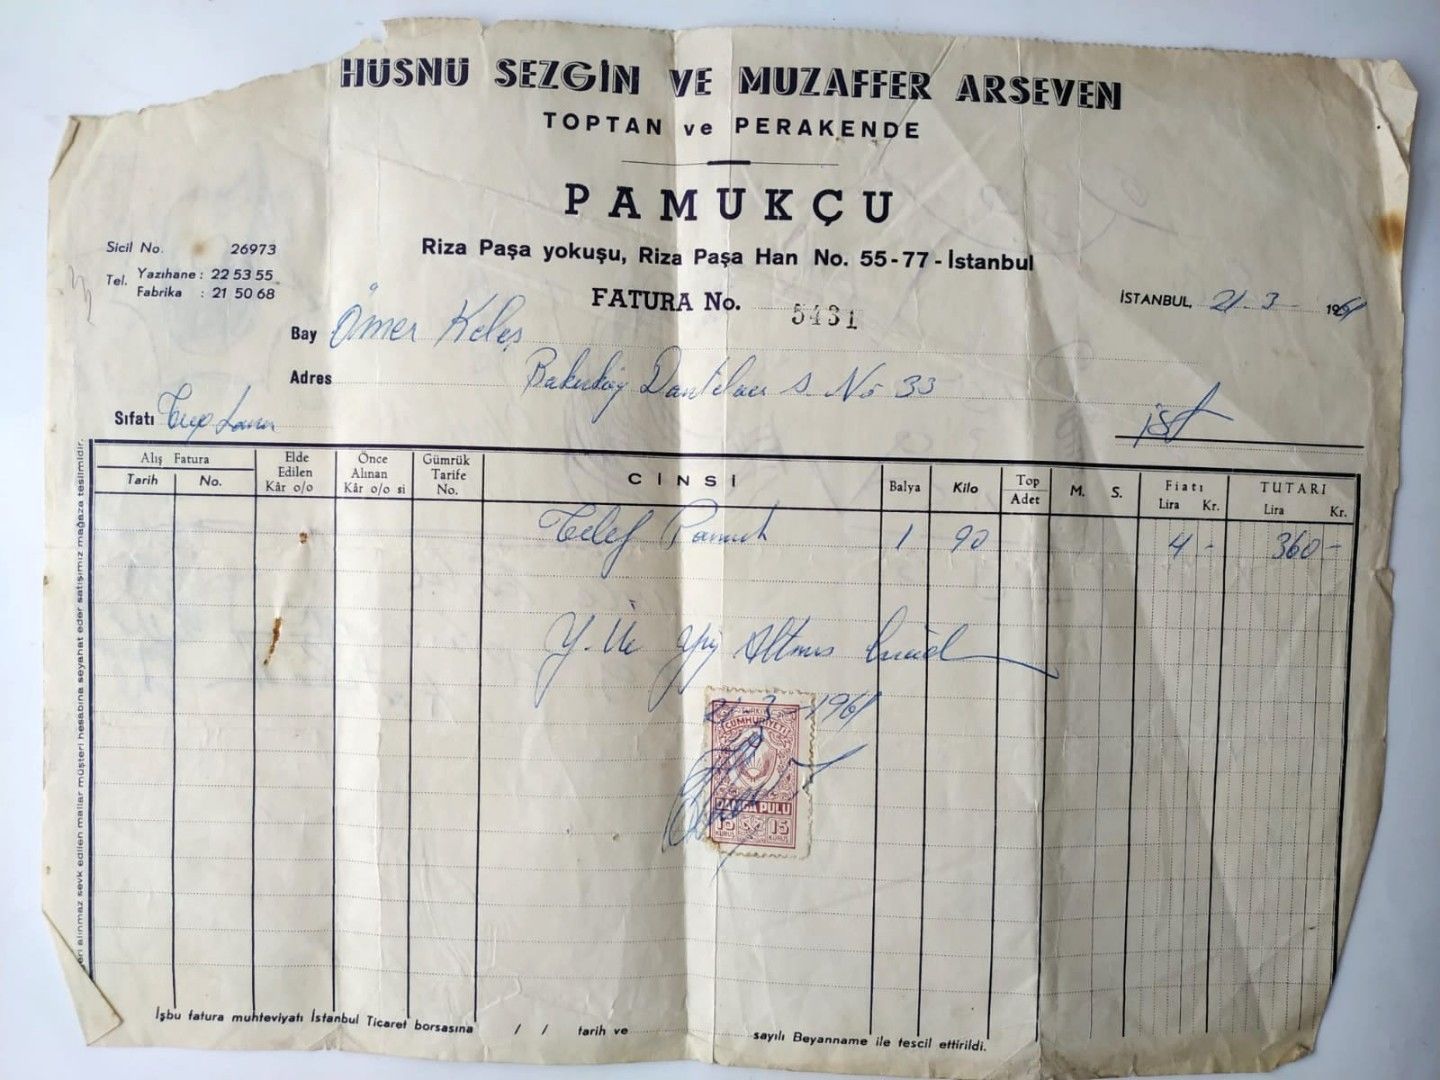 HÜSNÜ SEZGİN VE MUZAFFER ARSEVEN
TOPTAN ve PERAKENDE
PAMUKÇU
Riza Paşa yokuşu, Riza Paşa Han No. 55-77 - İstanbul
Sicil No. 26973
Tel. Yazıhane : 22 53 55
Fabrika : 21 50 68
FATURA No. 5431
İSTANBUL, 21-3-1961
Bay Ömer Keleş
Adres Bakırköy Dantelacı s. No 33
Sıfatı
İST
Alış Fatura Tarih No.
Elde Edilen Kâr o/o
Önce Alınan Kâr o/o si
Gümrük Tarife No.
CİNSİ
Balya
Kilo
Top Adet
M. S.
Fiatı Lira Kr.
TUTARI Lira Kr.
Telef Pamuk 1 90 4 - 360 -
Y. Üç yüz Altmış liradır
21-3-1961
CUMHURİYETİ
DAMGA PULU
15 15
KURUŞ KURUŞ
alınmaz sevk edilen mallar müşteri hesabına seyahat eder satışımız mağaza teslimidir.
İşbu fatura muhteviyatı İstanbul Ticaret borsasına / / tarih ve sayılı Beyanname ile tescil ettirildi.